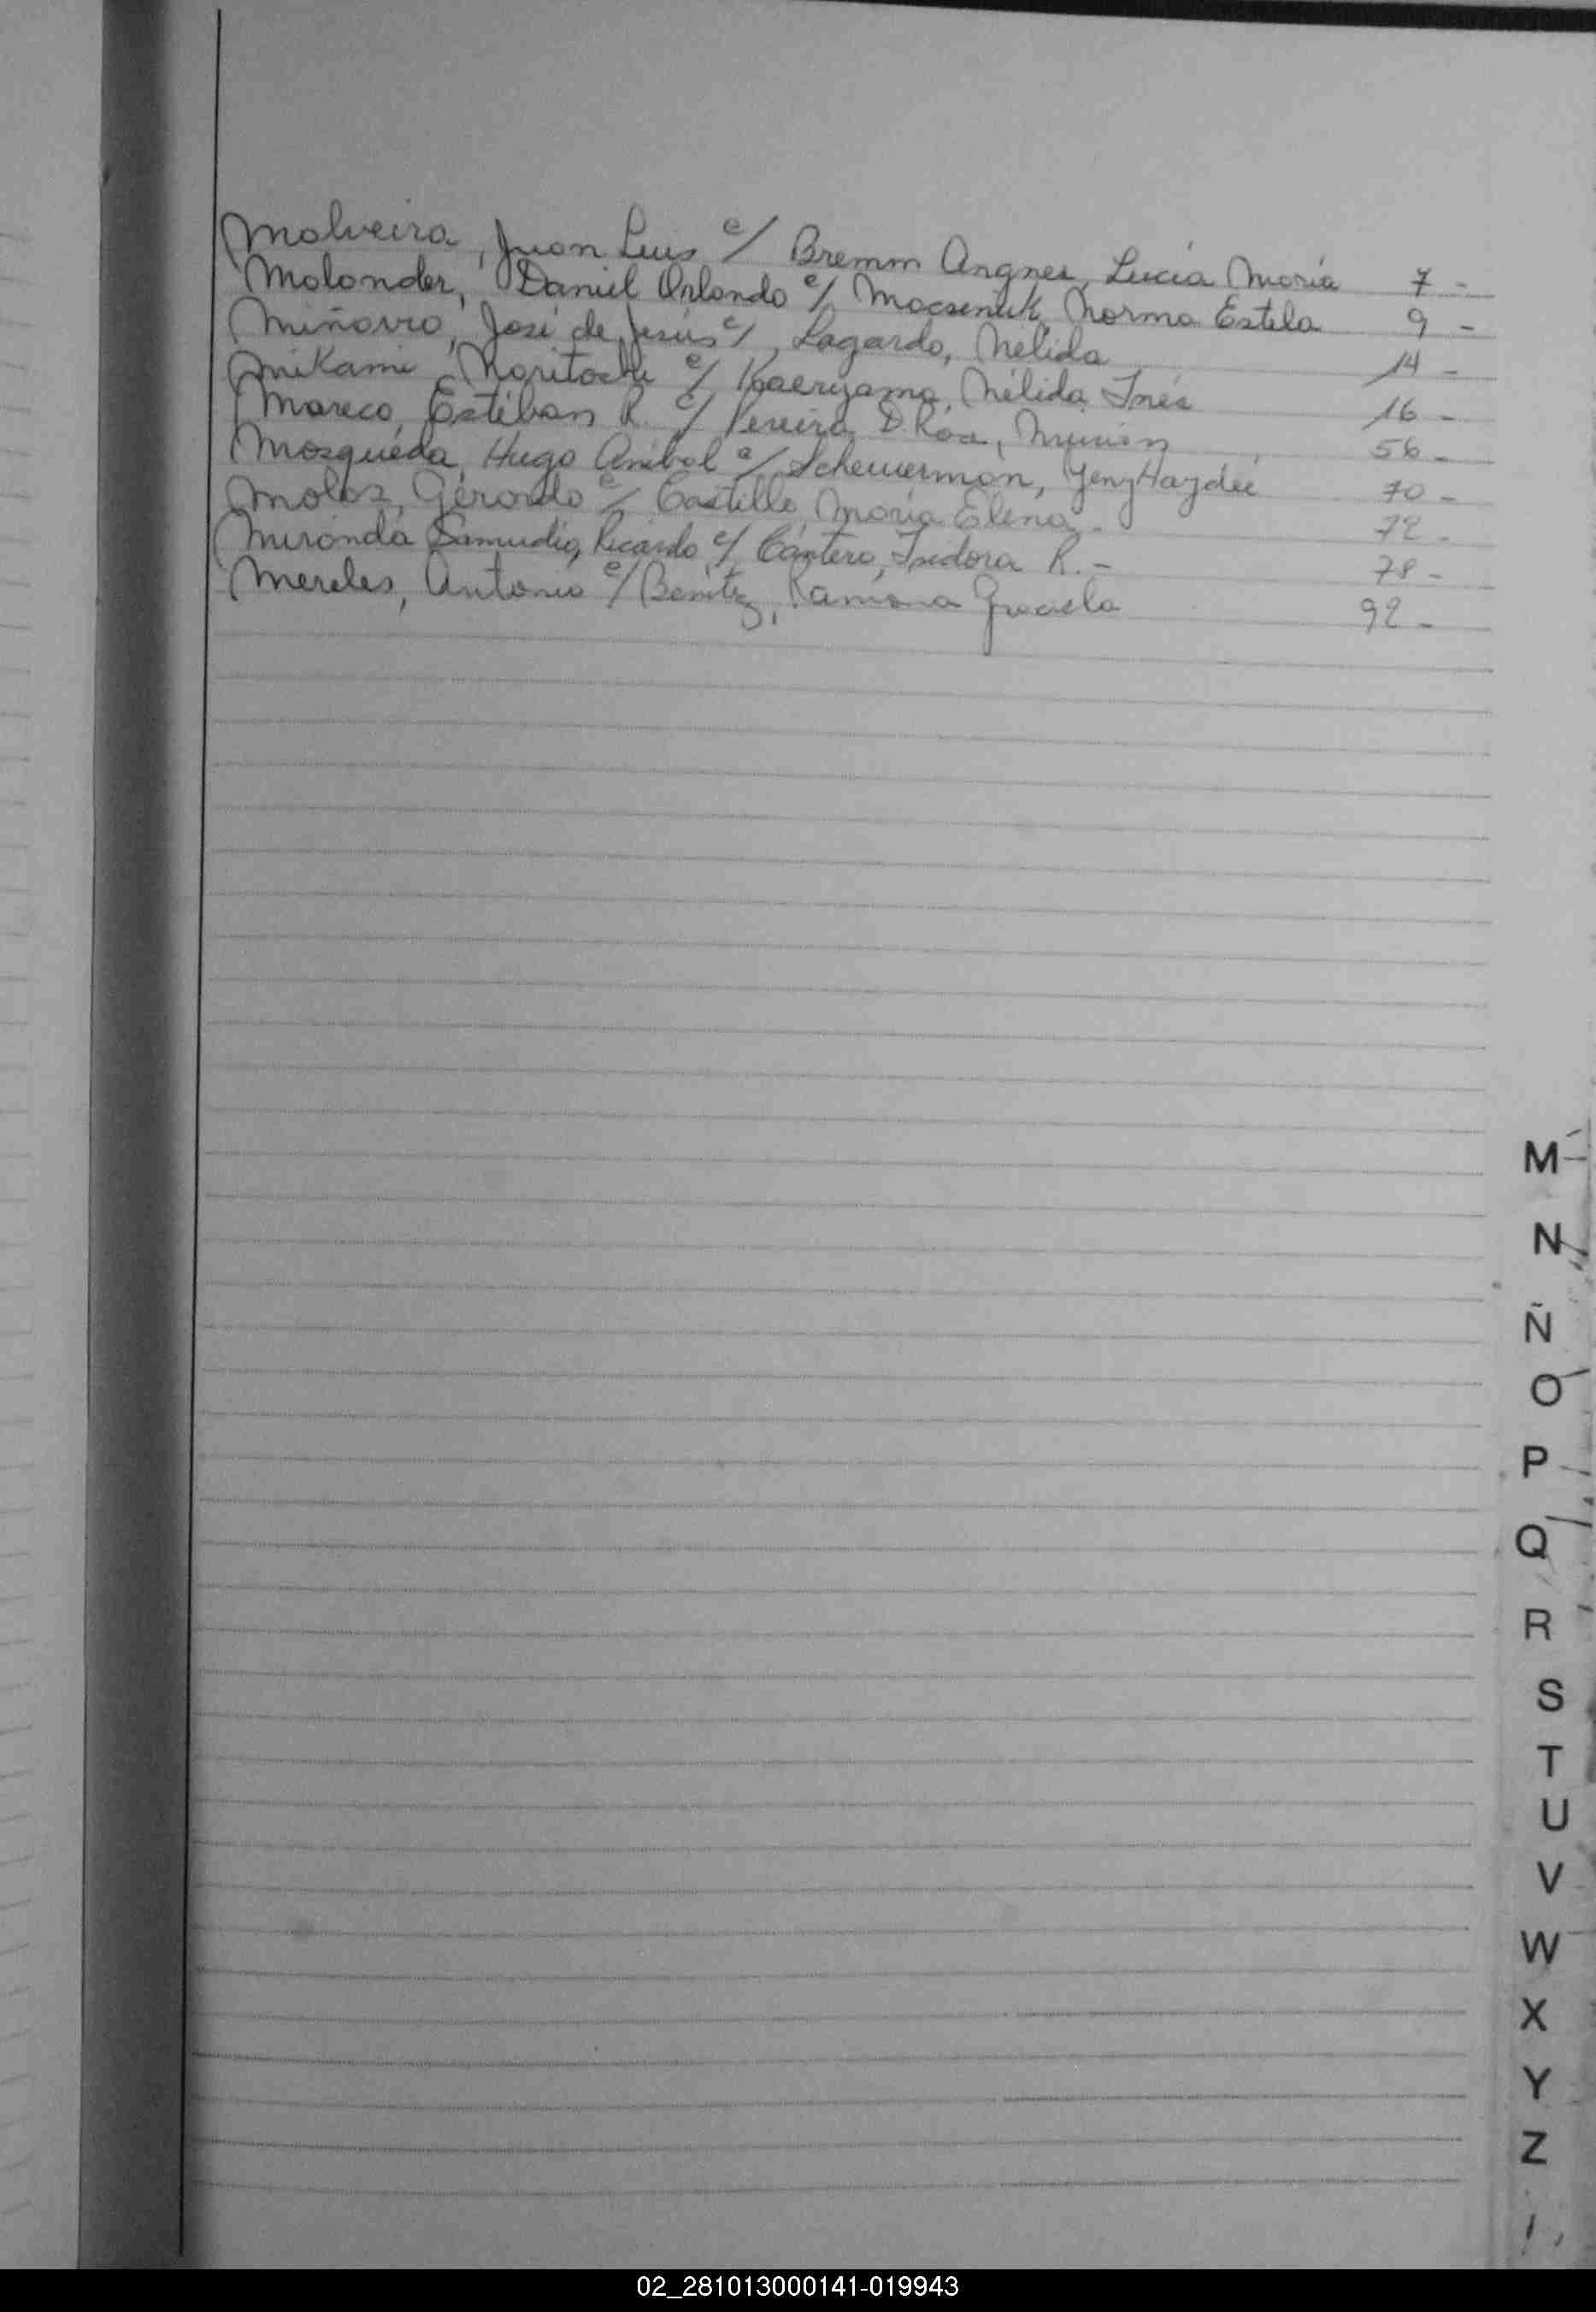 Malveira, Juan Luis c/ Bremm Angnes, Lucía María 7 -
Molonder, Daniel Orlando c/ Mocseniuk, Norma Estela 9 -
Miñarro, José de Jesús c/ Lagardo, Nélida 14 -
Mikami Noritochi c/ Kaeriyama, Nélida Inés 16 -
Mareco, Estéban R. c/ Pereira D Roa, Miriam 56 -
Mosqueda, Hugo Aníbal c/ Scheuerman, Yeny Haydeé 70 -
Molas, Gerardo c/ Castillo, María Elena - 72 -
Miranda Samudio, Ricardo c/ Cántero, Isidora R. - 78 -
Mereles, Antonio c/ Benítez, Ramona Graciela 92 -
M
N
Ñ
O
P
Q
R
S
T
U
V
W
X
Y
Z
02_281013000141-019943